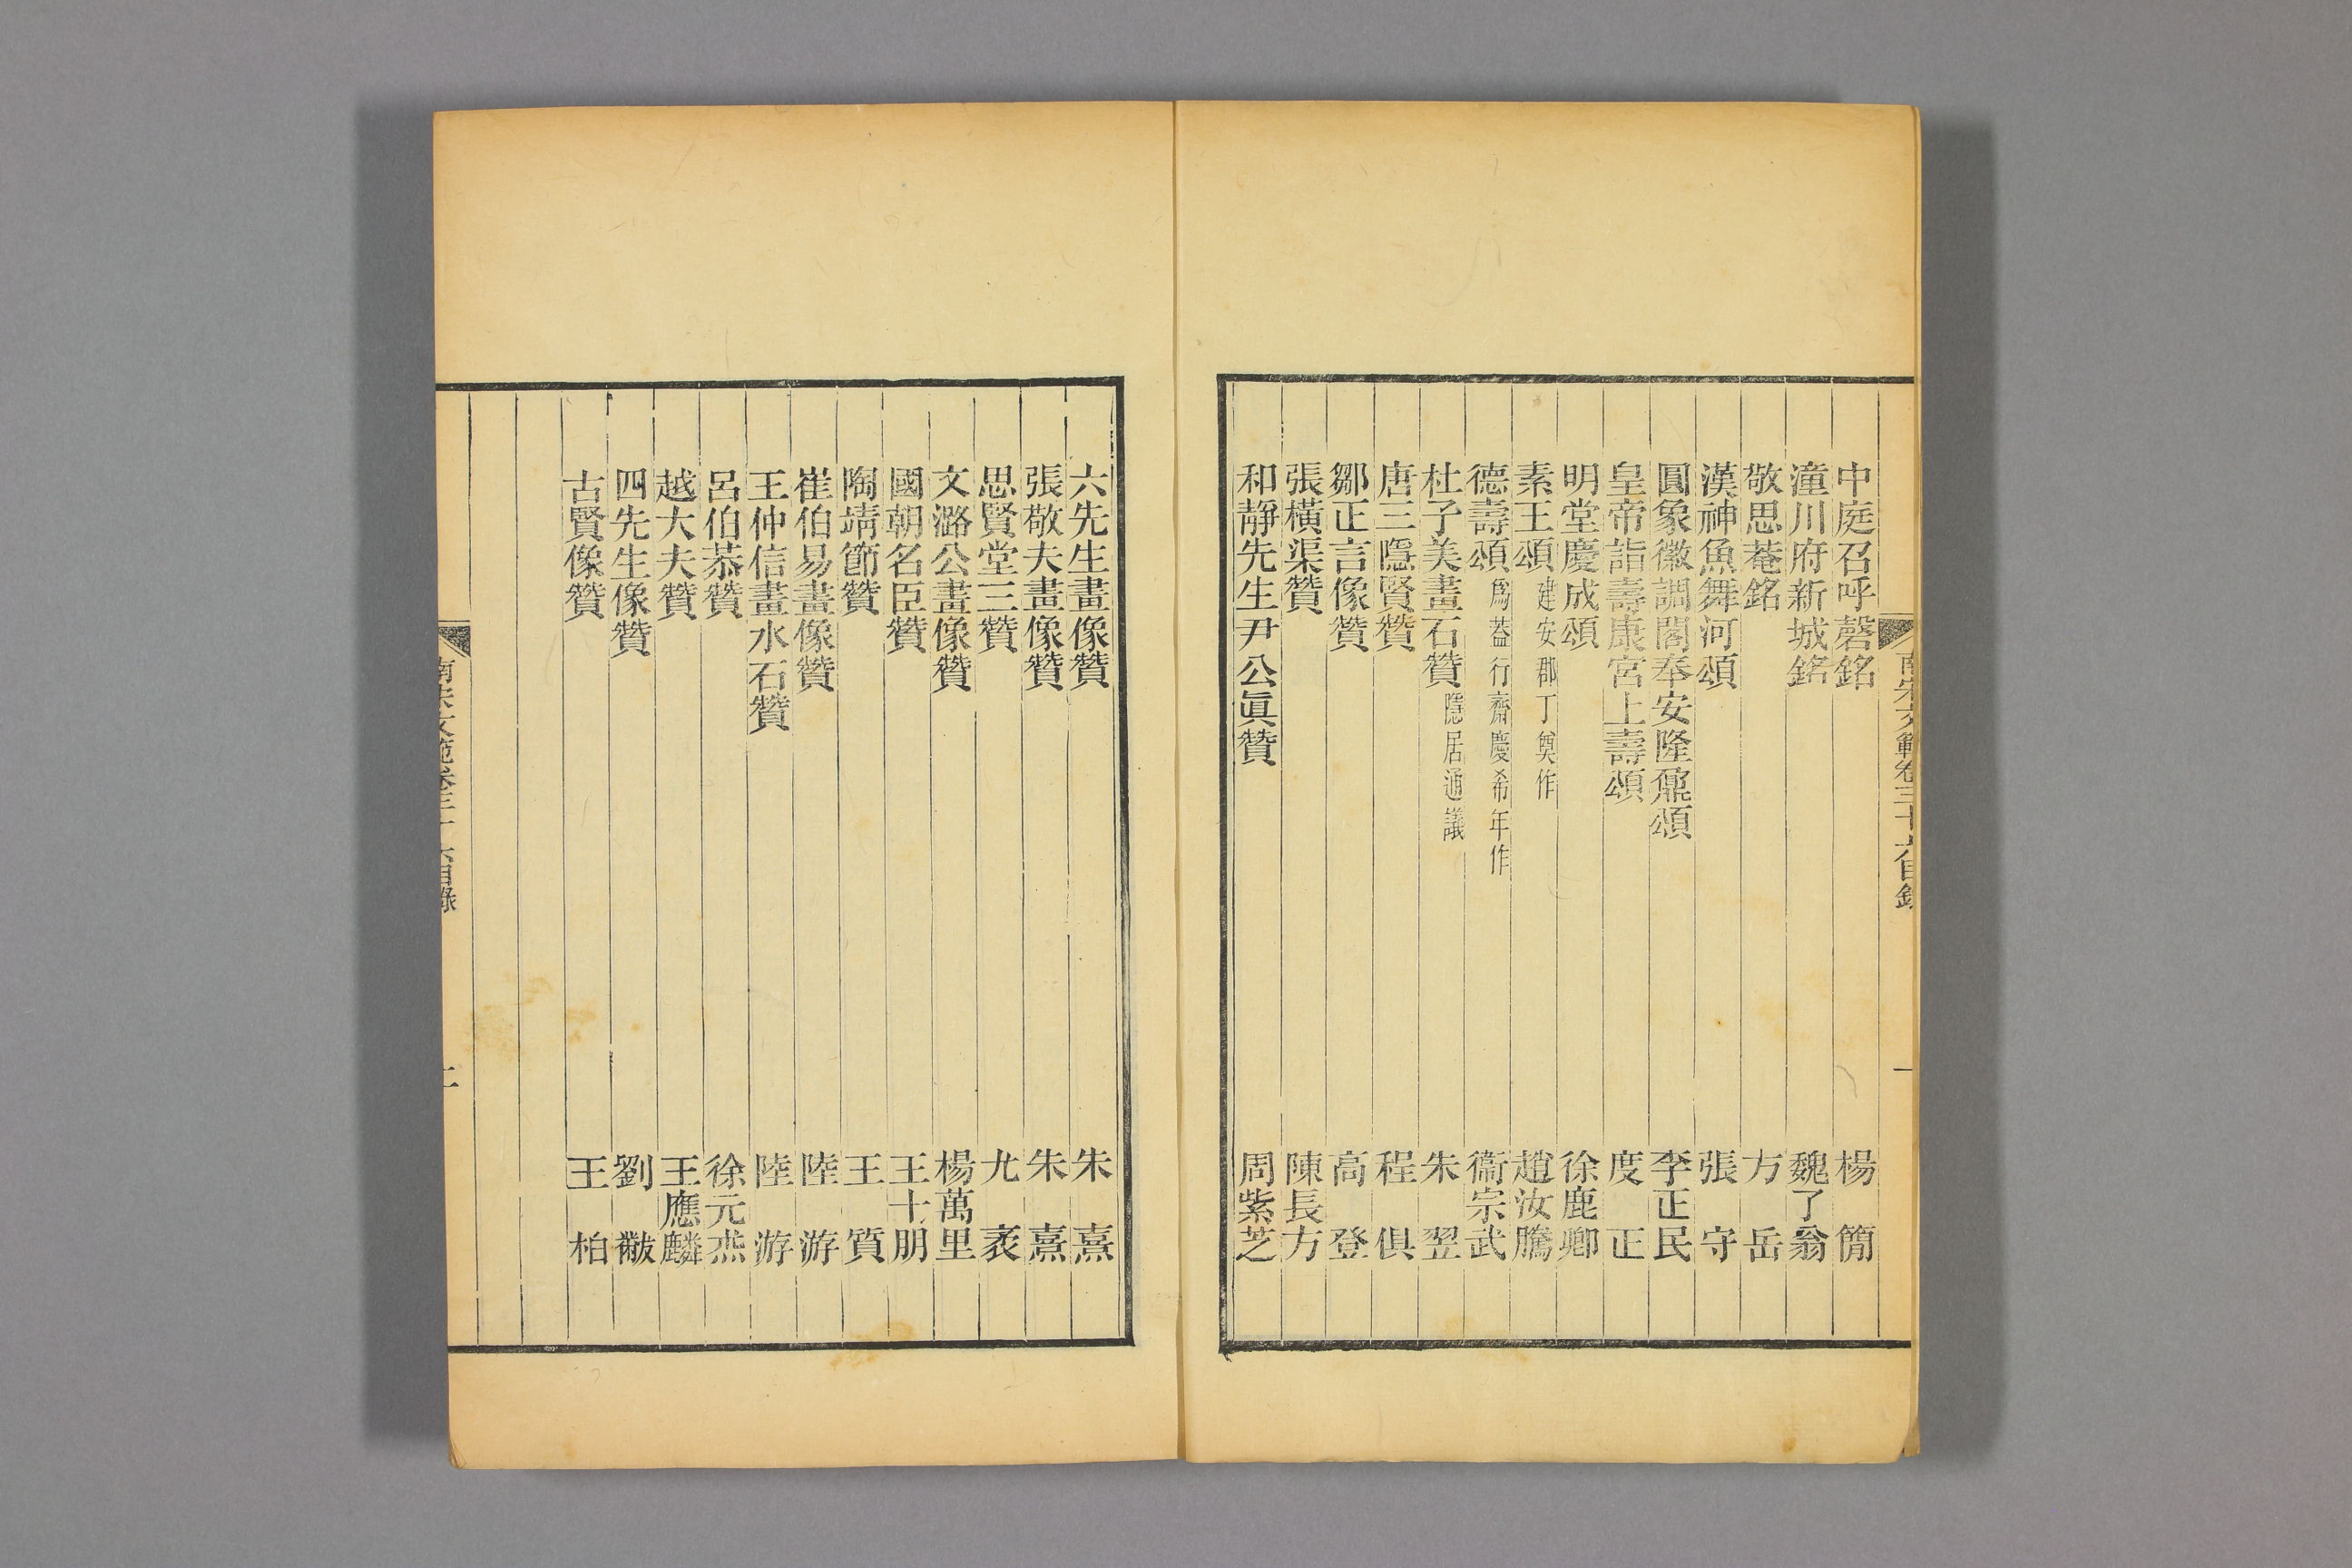 中庭召呼磬銘　楊簡
潼川府新城銘　魏了翁
敬思菴銘　方岳
漢神魚舞河頌　張守
圓象徽調閣奉安隆鼐頌　李正民
皇帝詣壽康宮上壽頌　度正
明堂慶成頌　徐鹿卿
素王頌建安郡丁奠作　趙汝騰
德壽頌爲葢行齋慶希年作　衞宗武
杜子美畫石贊隱居通議　朱翌
唐三隱賢贊　程俱
鄒正言像贊　高登
張橫渠贊　陳長方
和靜先生尹公眞贊　周紫芝
南宋文範卷三十六目錄
一
六先生畫像贊　朱熹
張敬夫畫像贊　朱熹
思賢堂三贊　尤袤
文潞公畫像贊　楊萬里
國朝名臣贊　王十朋
陶靖節贊　王質
崔伯易畫像贊　陸游
王仲信畫水石贊　陸游
呂伯恭贊　徐元杰
越大夫贊　王應麟
四先生像贊　劉黻
古賢像贊　王柏
南宋文範卷三十六目錄
二